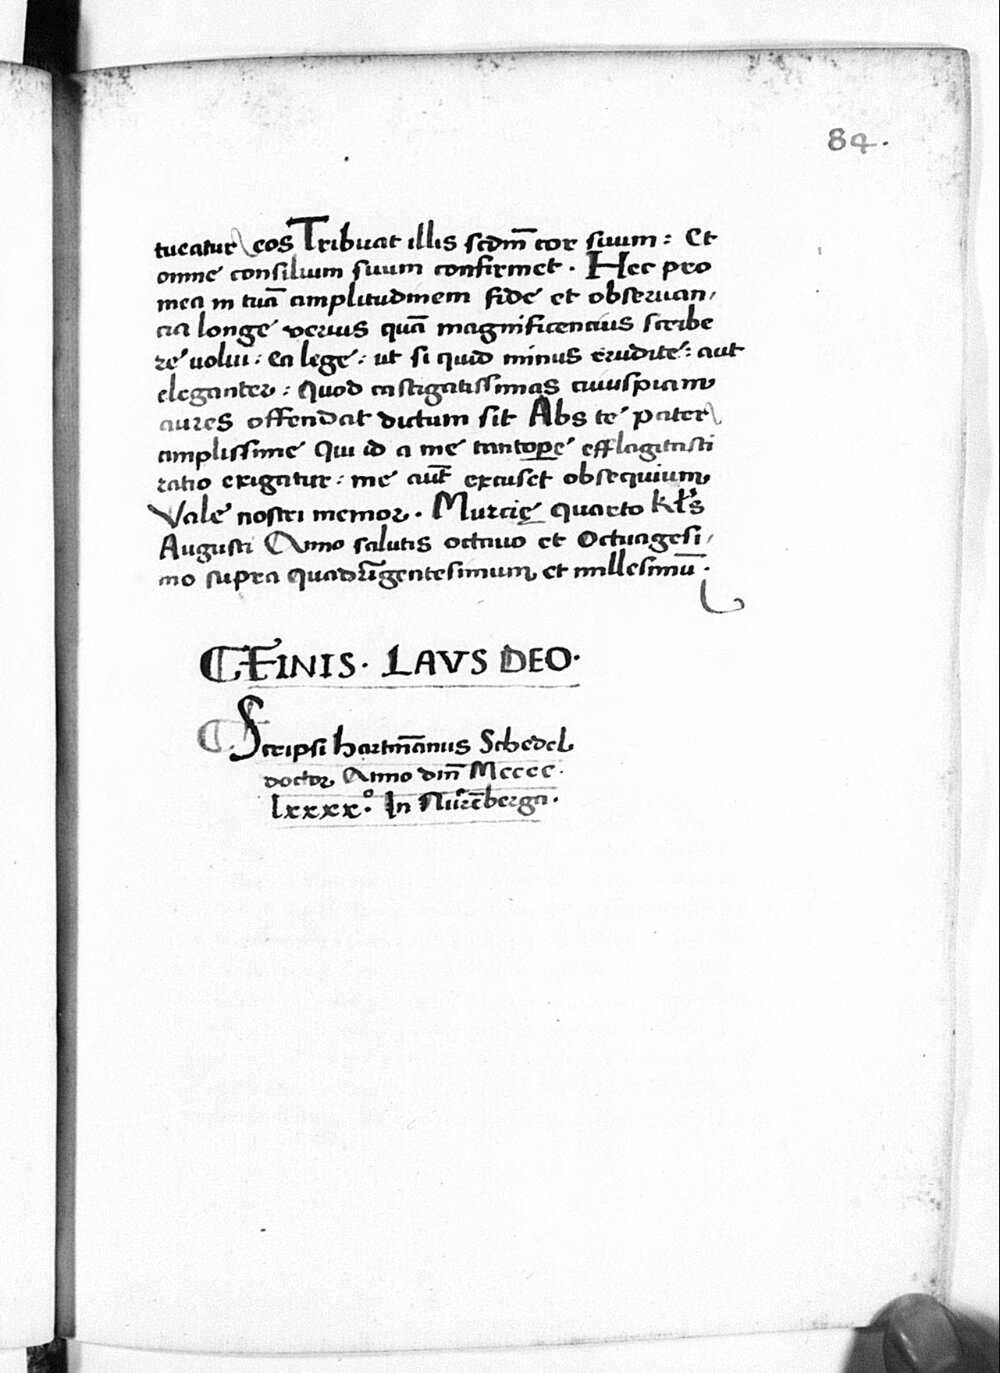 84.
tueatur eos Tribuat illis scdm̄ cor suum : Et
omne consilium suum confirmet . Hec pro
mea in tuā amplitudinem fide et obseruan,
cia longe verius quā magnificencius scribe
re uolui : ea lege : ut si quid minus erudite : aut
eleganter : Quod castigatissimas cuiuspiam
aures offendat dictum sit Abs te pater
amplissime Qui id a me tantope efflagitasti
ratio exigatur : me aut̄ excuset obsequium
Vale nostri memor . Murcię Quarto kłs
Augusti Anno salutis octauo et Octuagesi,
mo supra Quadrīgentesimum et millesimū .
FINIS . LAVS DEO .
Scripsi hartmānus Schedel
doctor Anno dm̄ Mcccc .
lxxxx.° In Nurēberga .